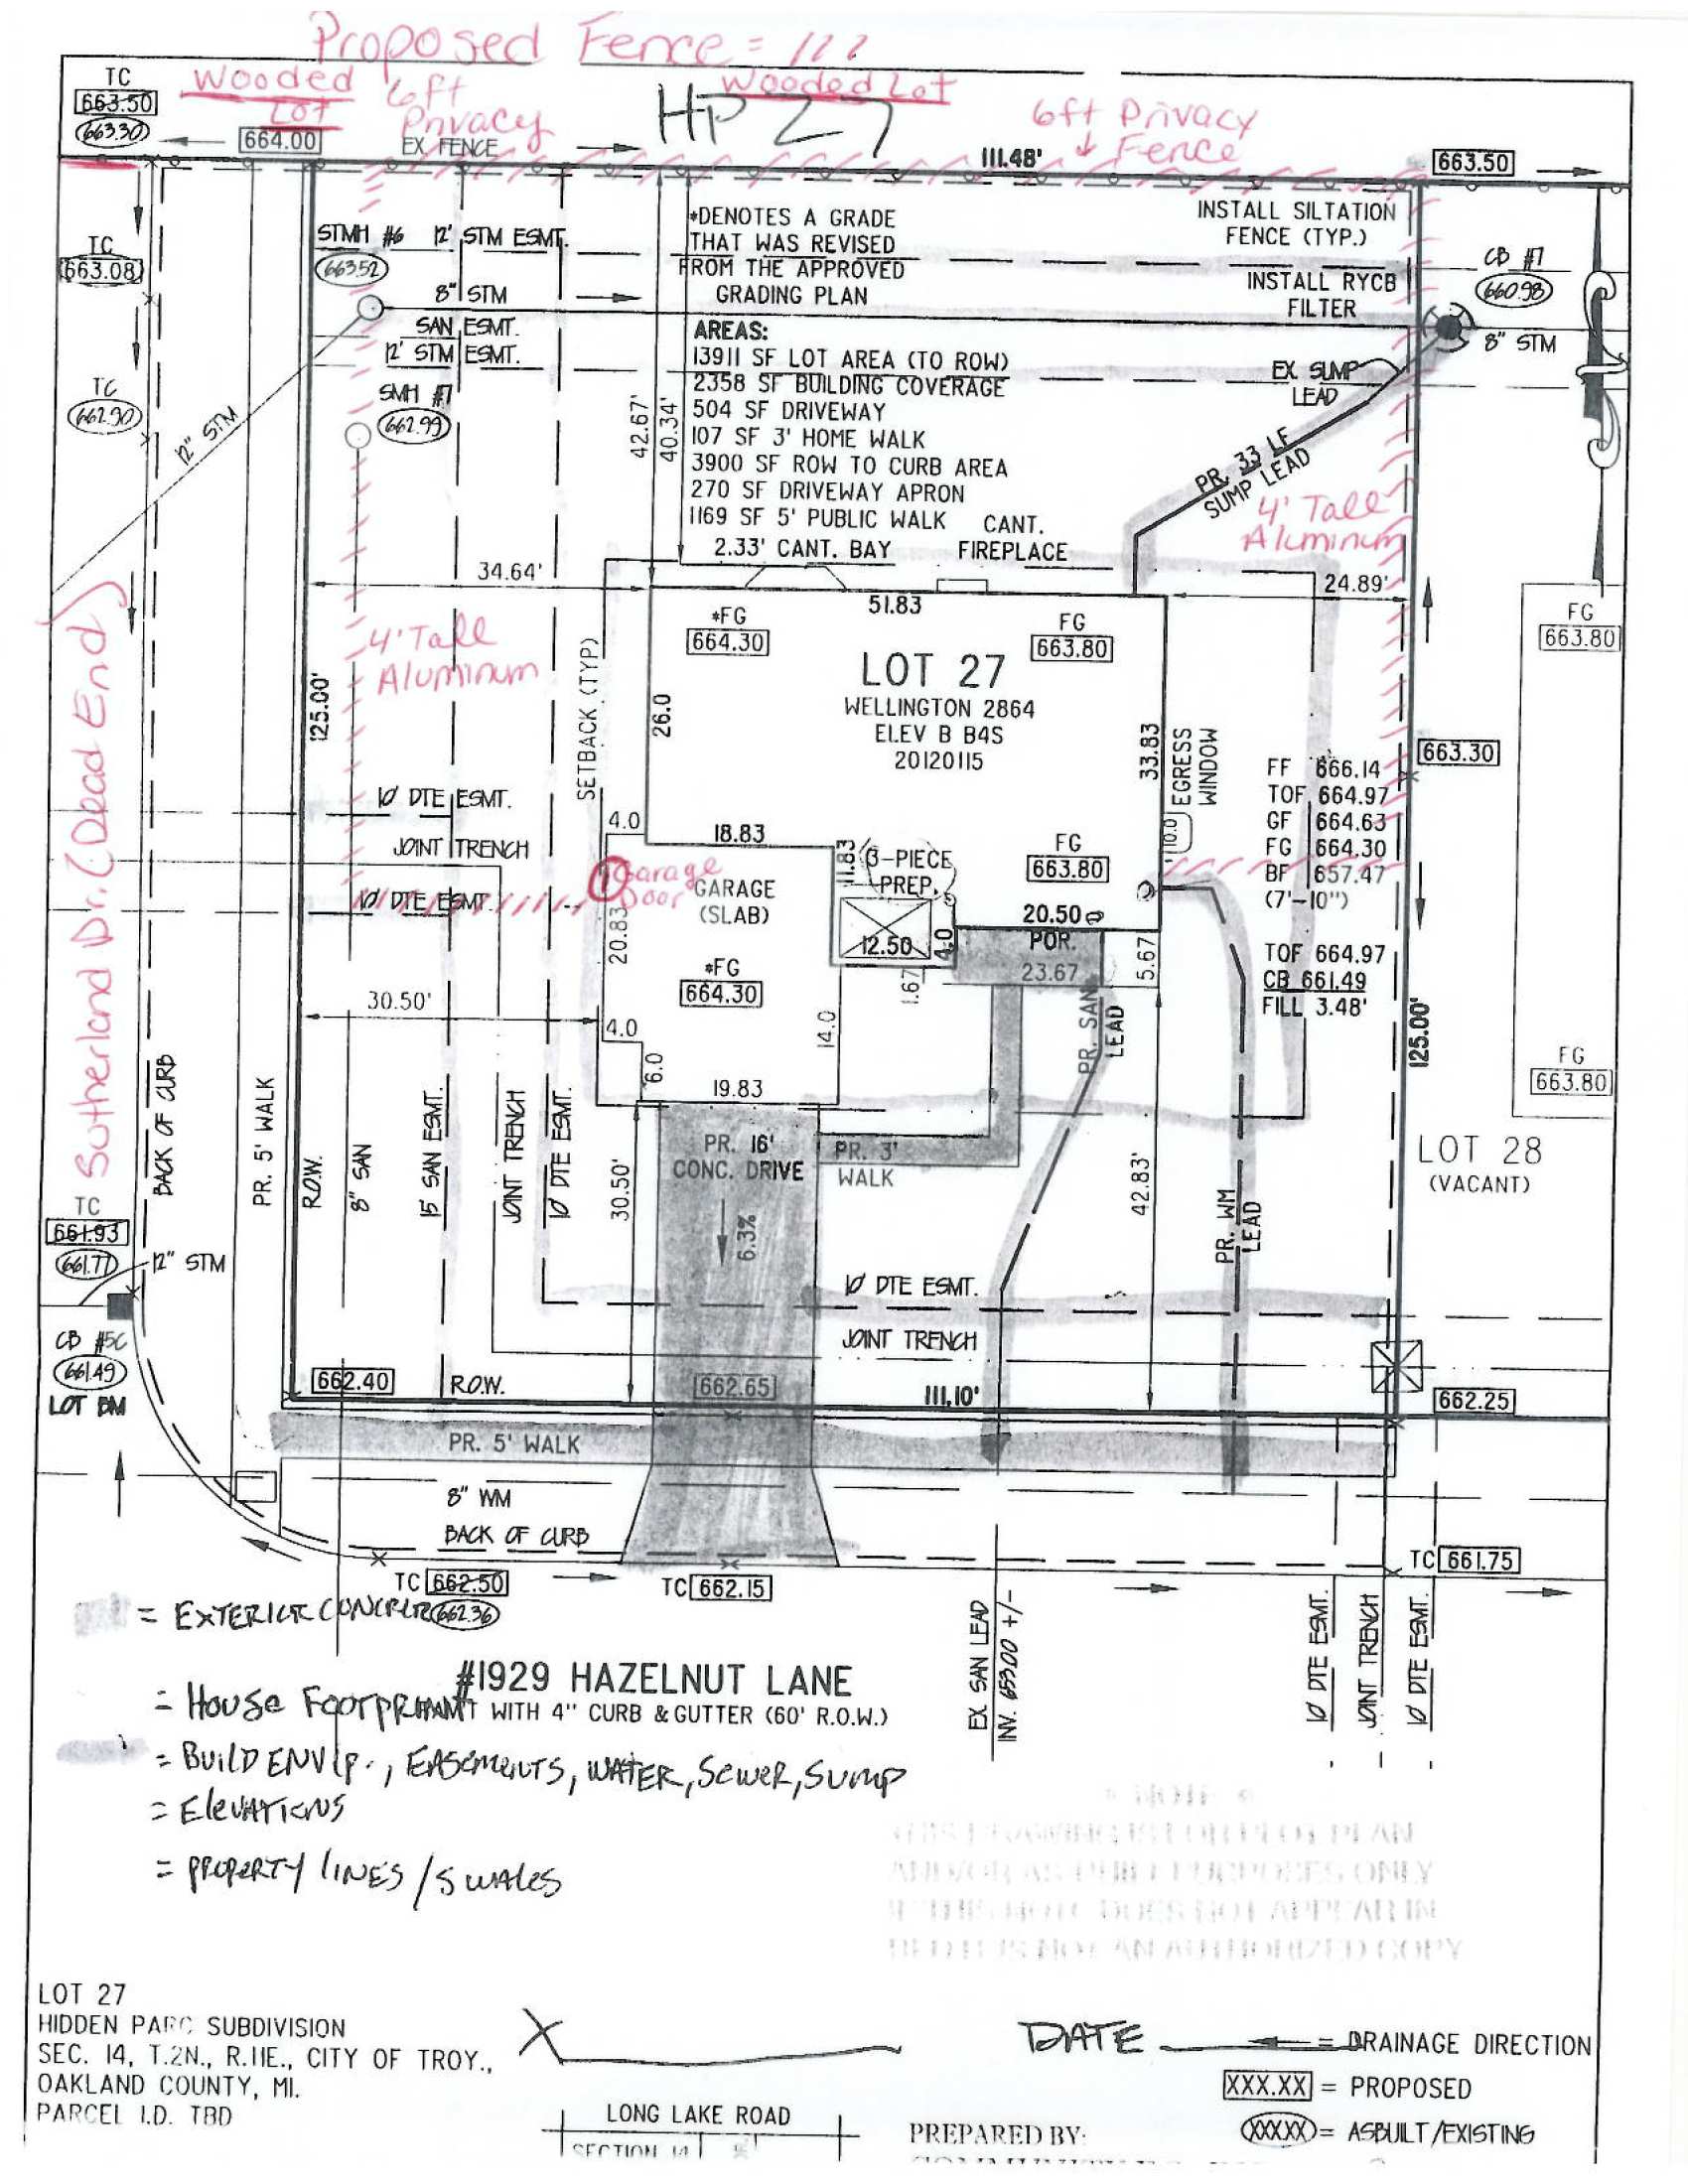 Proposed Fence = ///
TC
663.50
663.30
Wooded
Lot
6ft
Privacy
Wooded Lot
HP 27
6ft Privacy
Fence
664.00
EX. FENCE
111.48'
663.50
TC
663.08
STMH #6
12' STM ESMT.
663.52
*DENOTES A GRADE
THAT WAS REVISED
FROM THE APPROVED
GRADING PLAN
INSTALL SILTATION
FENCE (TYP.)
INSTALL RYCB
FILTER
CB #7
660.98
8" STM
8" STM
SAN ESMT.
12' STM ESMT.
AREAS:
13911 SF LOT AREA (TO ROW)
2358 SF BUILDING COVERAGE
504 SF DRIVEWAY
107 SF 3' HOME WALK
3900 SF ROW TO CURB AREA
270 SF DRIVEWAY APRON
1169 SF 5' PUBLIC WALK
EX. SUMP
LEAD
TC
662.90
12" STM
SMH #7
662.99
42.67'
40.34'
PR. 33 LF
SUMP LEAD
4' Tall
Aluminum
CANT.
2.33' CANT. BAY
FIREPLACE
34.64'
51.83
24.89'
Sutherland Dr. (Dead End)
4' Tall
Aluminum
125.00'
SETBACK (TYP)
*FG
664.30
FG
663.80
LOT 27
WELLINGTON 2864
ELEV B B4S
20120115
26.0
33.83
EGRESS
WINDOW
10.0
FG
663.80
663.30
FF 666.14
TOF 664.97
GF 664.63
FG 664.30
BF 657.47
(7'-10")
TOF 664.97
CB 661.49
FILL 3.48'
10' DTE ESMT.
JOINT TRENCH
10' DTE ESMT.
4.0
18.83
11.83
3-PIECE
PREP.
FG
663.80
Garage
Door
GARAGE
(SLAB)
20.83
12.50
4.0
20.50
POR.
23.67
5.67
1.67
*FG
664.30
30.50'
4.0
6.0
14.0
19.83
PR. SAN
LEAD
125.00'
FG
663.80
BACK OF CURB
PR. 5' WALK
R.O.W.
8" SAN
15' SAN ESMT.
JOINT TRENCH
10' DTE ESMT.
30.50'
PR. 16'
CONC. DRIVE
6.3%
PR. 3'
WALK
42.83'
PR. WM
LEAD
LOT 28
(VACANT)
TC
661.93
661.77
12" STM
10' DTE ESMT.
JOINT TRENCH
CB #5C
661.49
LOT BM
662.40
R.O.W.
662.65
111.10'
662.25
PR. 5' WALK
8" WM
BACK OF CURB
TC 662.50
662.36
TC 662.15
TC 661.75
= EXTERIOR CONCRETE
#1929 HAZELNUT LANE
WITH 4" CURB & GUTTER (60' R.O.W.)
EX SAN LEAD
INV. 653.00 +/-
10' DTE ESMT.
JOINT TRENCH
10' DTE ESMT.
= House Footprint
= BUILD ENVLP., EASEMENTS, WATER, Sewer, Sump
= ElevATIONS
= PROPERTY LINES / SWALES
THIS DRAWING IS FOR PLOT PLAN
PURPOSES ONLY
IF THIS NOTE DOES NOT APPEAR IN
RED IT IS NOT AN AUTHORIZED COPY
LOT 27
HIDDEN PARC SUBDIVISION
SEC. 14, T.2N., R.11E., CITY OF TROY.,
OAKLAND COUNTY, MI.
PARCEL I.D. TBD
X
DATE
= DRAINAGE DIRECTION
XXX.XX = PROPOSED
XXX.XX = ASBUILT/EXISTING
LONG LAKE ROAD
SECTION 14
PREPARED BY: